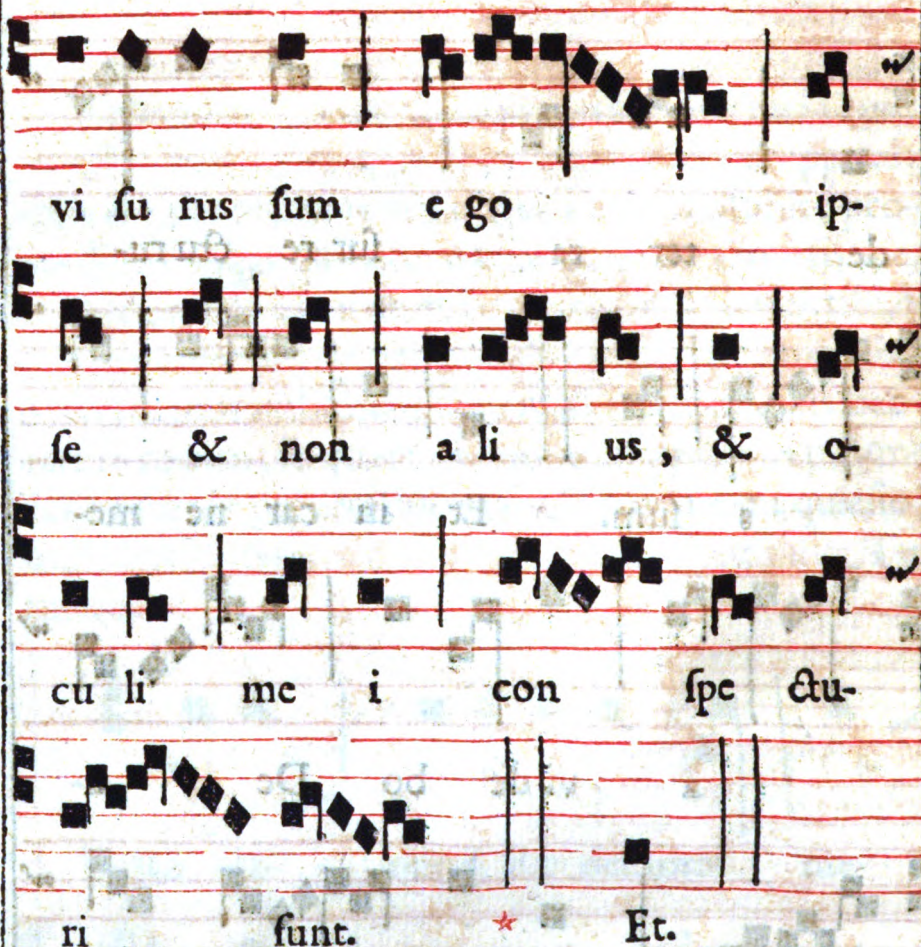 vi ſu rus ſum e go ip-
ſe & non a li us , & o-
cu li me i con ſpe ctu-
ri ſunt. * Et.